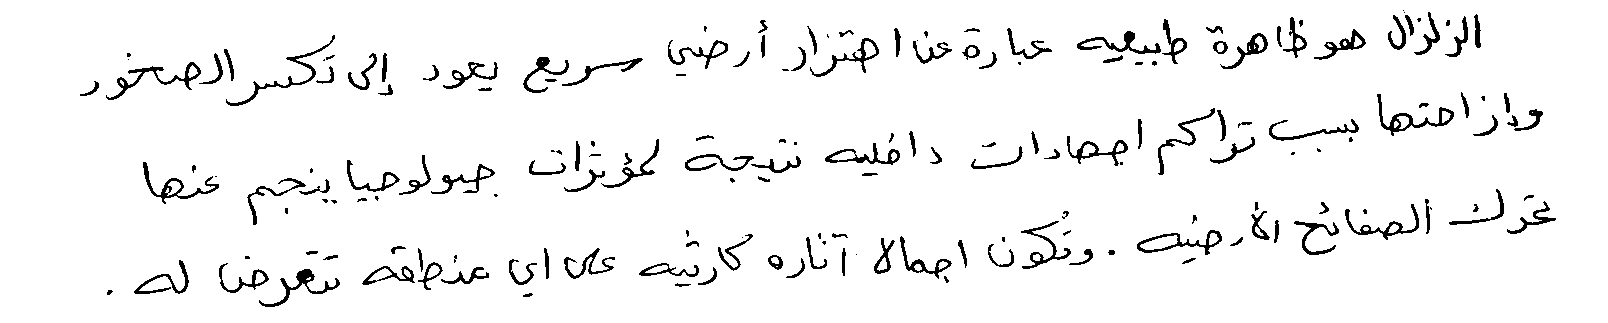 الزلزال هو ظاهرة طبيعيه عبارة عن اهتزاز أرضي سريع يعود إلى تكسر الصخور
وإزاحتها بسبب تراكم اجهادات داخليه نتيجة لمؤثرات جيولوجيا ينجم عنها
تحرك الصفائح الأرضيه . وتكون اجمالا آثاره كارثيه على اي منطقه تتعرض له .